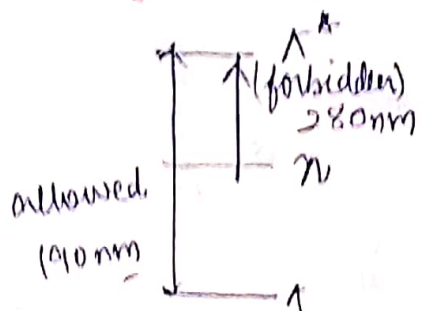 Λ*
(forbidden)
280nm
n
allowed
190nm
Λ